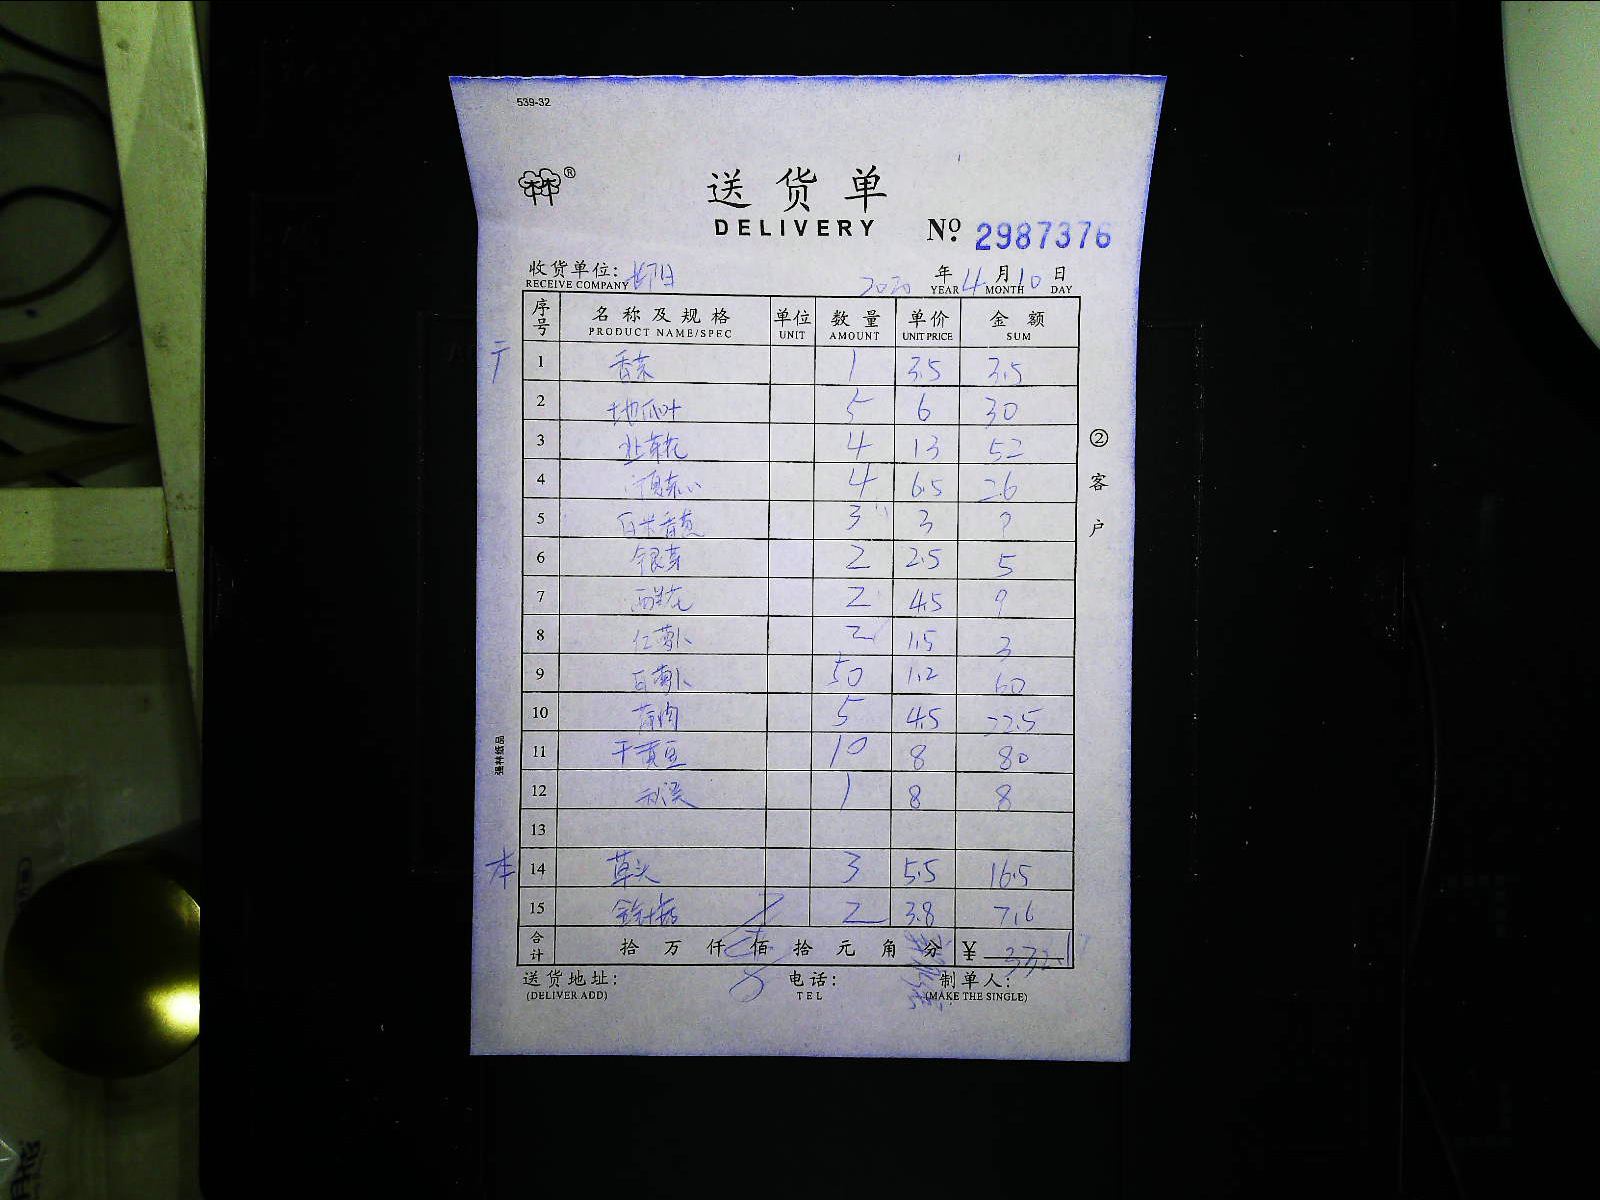 539-32
送货单
DELIVERY
Nº. 2987376
收货单位: 2020 年 4 月 10 日
RECEIVE COMPANY YEAR MONTH DAY
序号 名称及规格 单位 数量 单价 金额
PRODUCT NAME/SPEC UNIT AMOUNT UNIT PRICE SUM
1 香菜 1 3.5 3.5
2 地瓜叶 5 6 30
3 4 13 52
4 4 6.5 26
5 3 3 9
6 银芽 2 2.5 5
7 西芹 2 4.5 9
8 仁萝卜 2 1.5 3
9 白萝卜 50 1.2 60
10 5 4.5 22.5
11 干黄豆 10 8 80
12 1 8 8
13
本 14 草头 3 5.5 16.5
15 金针菇 2 3.8 7.6
合计 拾 万 仟 佰 拾 元 角 分 ¥ 332.1
送货地址: 电话: 制单人:
(DELIVER ADD) TEL (MAKE THE SINGLE)
② 客户
强林纸品